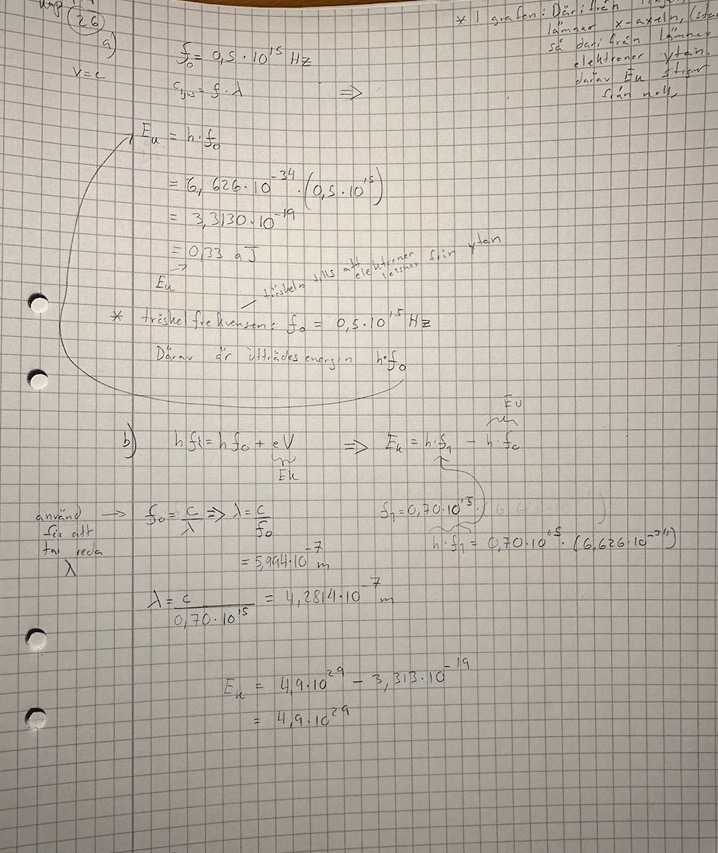 26
* I grafen: Därifrån
lämnar x-axeln,
så därifrån lämnar
elektroner ytan.
därav Eu stiger
från noll.
a)
f₀ = 0,5 · 10¹⁵ Hz
V = c
= f · λ ⇒
Eu = h · f₀
= 6,626 · 10⁻³⁴ · (0,5 · 10¹⁵)
= 3,3130 · 10⁻¹⁹
= 0,33 aJ
Eu
tröskeln tills att elektroner lossnar från ytan
* tröskelfrekvensen: f₀ = 0,5 · 10¹⁵ Hz
Därav är utträdesenergin h · f₀
b) hf₁ = hf₀ + eV ⇒ Ek = h · f₁ − h · f₀
Ek
Eu
använd
för att
ta reda
λ
f₀ = c/λ ⇒ λ = c/f₀
= 5,994 · 10⁻⁷ m
f₁ = 0,70 · 10¹⁵
h · f₁ = 0,70 · 10¹⁵ · (6,626 · 10⁻³⁴)
λ = c/0,70 · 10¹⁵ = 4,2814 · 10⁻⁷ m
Ek = 4,9 · 10²⁹ − 3,313 · 10⁻¹⁹
= 4,9 · 10²⁹